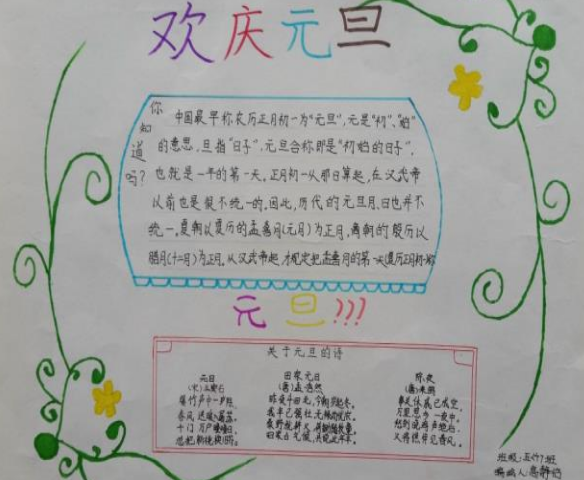 欢庆元旦
你知道吗?
中国最早称农历正月初一为"元旦",元是"初"、"始"
的意思,旦指"日子",元旦合称即是"初始的日子",
也就是一年的第一天。正月初一从那日算起,在汉武帝
以前也是很不统一的。因此,历代的元旦月、日也并不
统一。夏朝以夏历的孟喜月(元月)为正月,商朝的殷历以
腊月(十二月)为正月。从汉武帝起,才规定把孟喜月的第一天(夏历正月初一
元旦???
关于元旦的诗
元日
(宋)王安石
爆竹声中一岁除
春风送暖入屠苏。
千门万户曈曈日,
总把新桃换旧符。
田家元日
(唐)孟浩然
昨夜斗回北,今朝岁起东。
我年已强仕,无禄尚忧农。
除夜
(唐)来鹄
事关休戚已成空,
万里思乡一夜中。
愁到晓鸡声绝后,
又将憔悴见春风。
班级:五(7)班
编辑人: